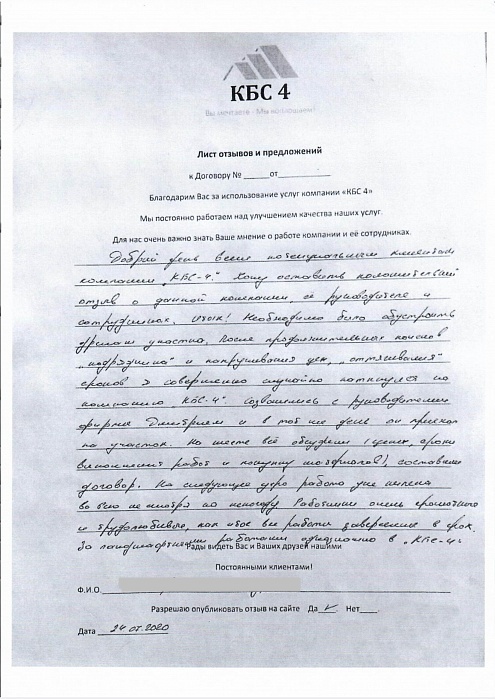 КБС 4
Вы мечтаете - Мы воплощаем!
Лист отзывов и предложений
к Договору № ______от____________
Благодарим Вас за использование услуг компании «КБС 4»
Мы постоянно работаем над улучшением качества наших услуг.
Для нас очень важно знать Ваше мнение о работе компании и её сотрудниках.
Добрый день всем потенциальным клиентам
компании „КБС-4". Хочу оставить положительный
отзыв о данной компании её руководителе и
сотрудниках. Итак! Необходимо было обустроить
участка. После продолжительных поисков
„подрядчика" и накручивания цен, „оттягивания"
сроков я совершенно случайно наткнулся на
компанию КБС-4". Созвонились с руководителем
фирмы Дмитрием и в тот же день он приехал
на участок. На месте всё обсудили (цену, сроки
выполнения работ и покупку материалов), составили
договор. На следующее утро работа уже кипела
во всю не смотря на непогоду. Работники очень грамотные
и трудолюбивые, как итог все работы завершены в срок.
За работами однозначно в „КБС-4"
Рады видеть Вас и Ваших друзей нашими
Постоянными клиентами!
Ф.И.О.
Разрешаю опубликовать отзыв на сайте Да ✓ Нет____.
Дата 24.07.2020